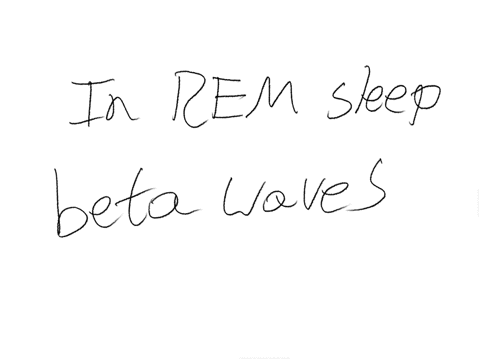 In REM sleep
beta waves